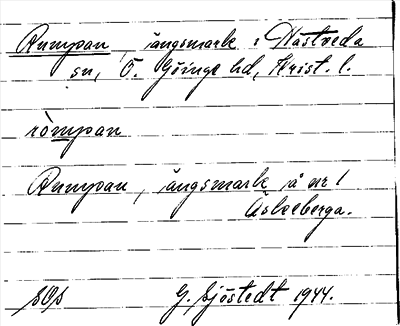 Rumpan, ängsmark i Hästveda
sn, Ö. Göinge hd, Krist. l.
ròmpan
Rumpan, ängsmark å nr 1
Äsleberga.
G. Sjöstedt 1944.